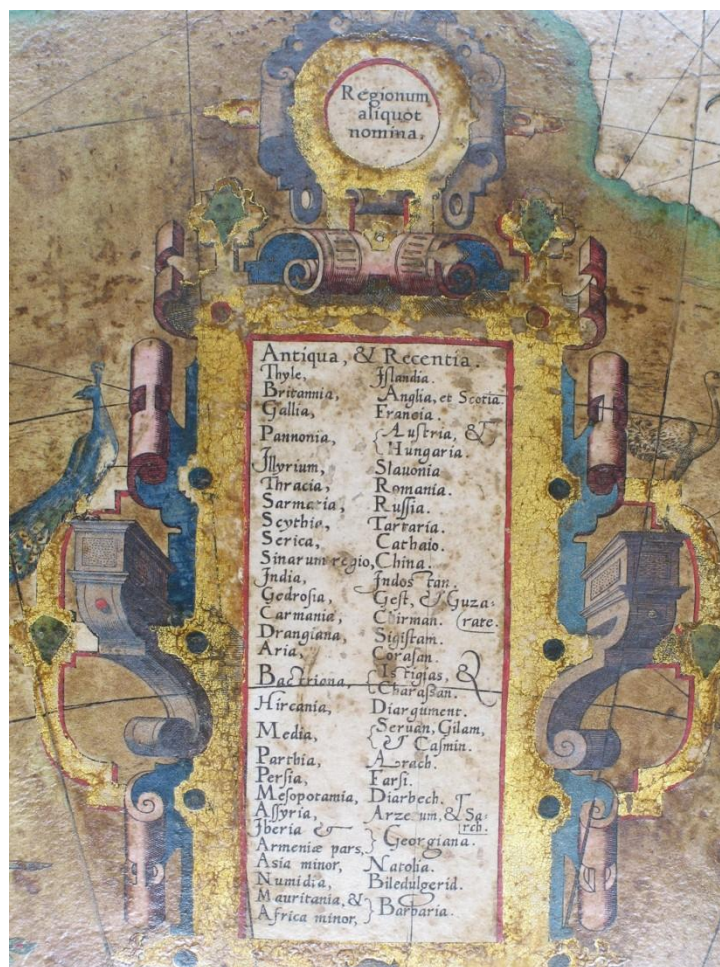 Regionum
aliquot
nomina,
Antiqua, & Recentia.
Thyle, Jslandia.
Britannia, Anglia, et Scotia.
Gallia, Francia.
Pannonia, Austria, &
Hungaria.
Jllyrium, Slauonia
Thracia, Romania.
Sarmatia, Russia.
Scythia, Tartaria.
Serica, Cathaio.
Sinarum regio, China.
Jndia, Jndostan.
Gedrosia, Gest, & Guza-
Carmania, Chirman. rate.
Drangiana, Sigistam.
Aria, Corasan.
Bactriona, Istigias, &
Charassan.
Hircania, Diargument.
Media, Seruan, Gilam,
& Casmin.
Parthia, Arach.
Persia, Farsi.
Mesopotamia, Diarbech.
Assyria, Arzerum, & Sa-
rch.
Jberia &
Armeniæ pars, Georgiana.
Asia minor, Natolia.
Numidia, Biledulgerid.
Mauritania, &
Africa minor, Barbaria.